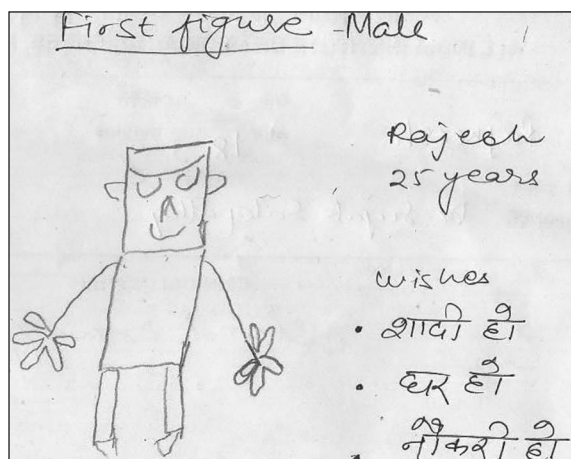 First figure Male
Rajesh
25 years
wishes
• शादी हो
• घर हो
• नौकरी हो